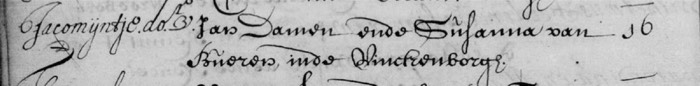 Jacomijntje. do.ʳ. Jan Damen ende Susanna van 16
Bueren, inde Vinckenborgh.